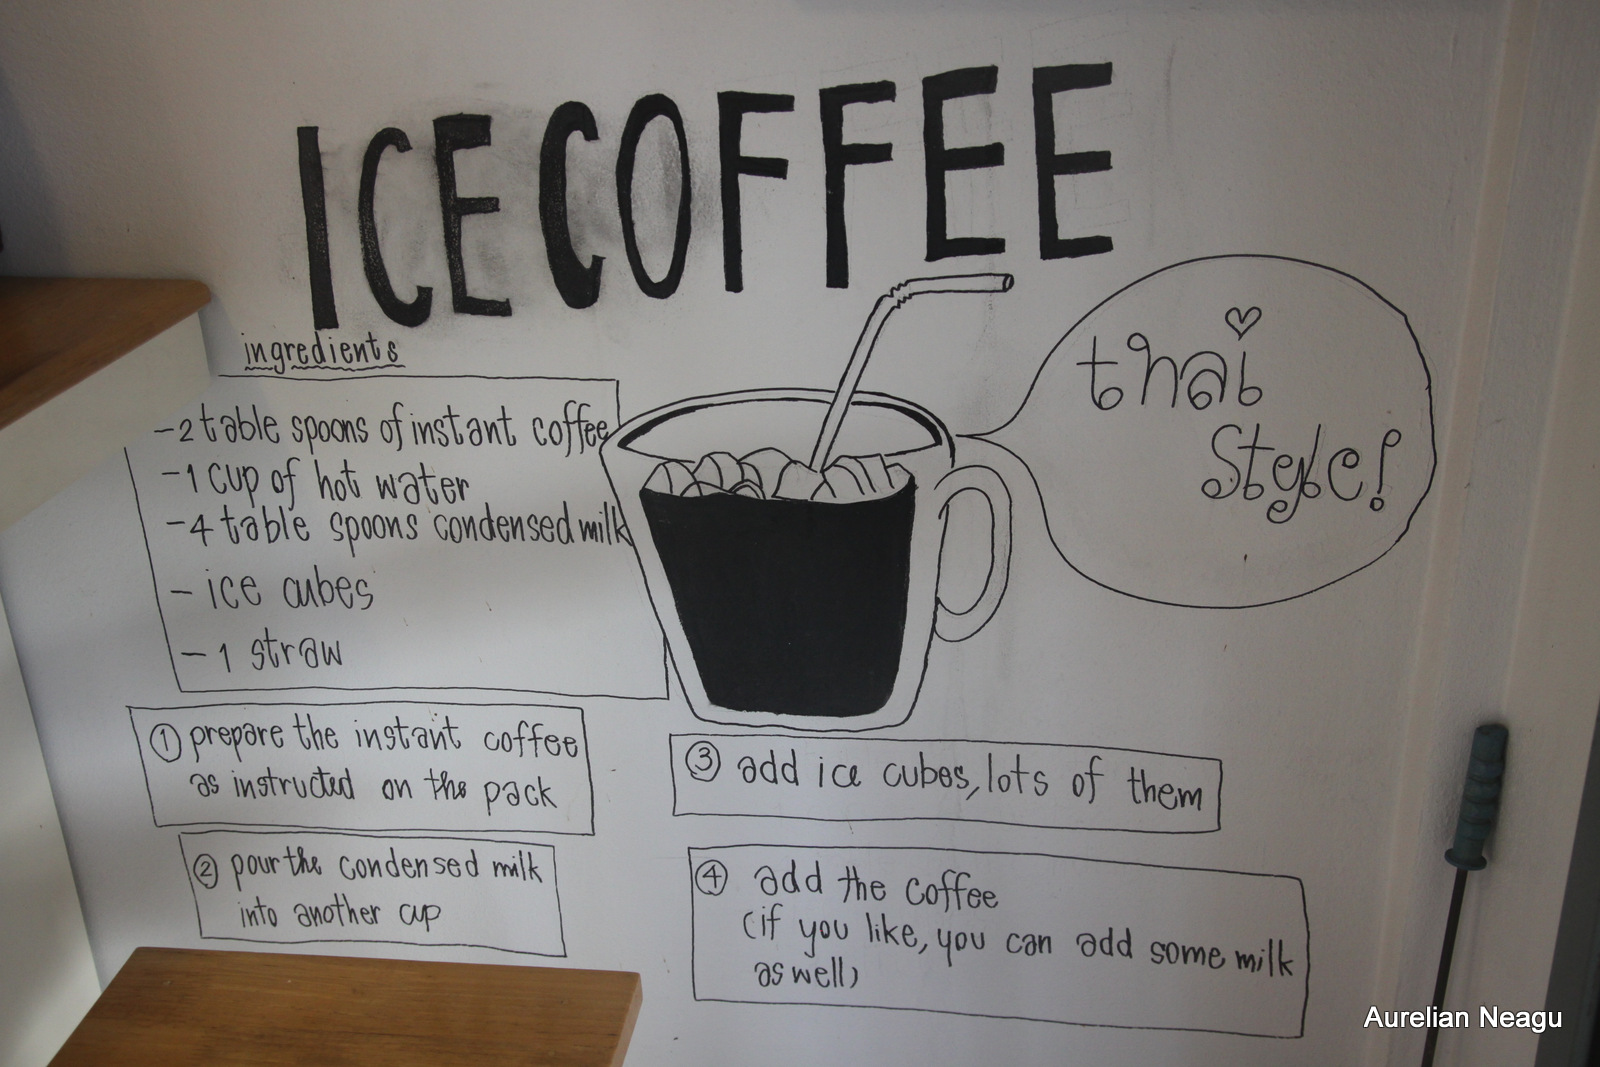 ICE COFFEE
ingredients
- 2 table spoons of instant coffee
- 1 cup of hot water
- 4 table spoons condensed milk
- ice cubes
- 1 straw
thai
style!
① prepare the instant coffee
as instructed on the pack
② pour the condensed milk
into another cup
③ add ice cubes, lots of them
④ add the coffee
(if you like, you can add some milk
as well)
Aurelian Neagu